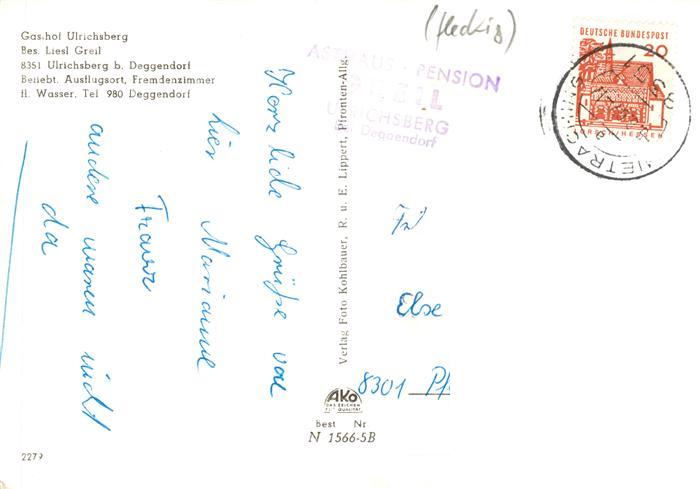 Gasthof Ulrichsberg
Bes. Liesl Greil
8351 Ulrichsberg b. Deggendorf
Beliebt. Ausflugsort, Fremdenzimmer
fl. Wasser, Tel 980 Deggendorf
(fleckig)
ASTHAUS - PENSION
GREIL
ULRICHSBERG
Deggendorf
DEUTSCHE BUNDESPOST
20
LORSCH/HESSEN
METRACHING
Herzliche Grüße von
hier Marianne
Franz
andere waren nicht
da
Verlag Foto Kohlbauer, R. u. E. Lippert, Pfronten-Allg.
Frl
Else
8301 Pf
AKO
DAS ZEICHEN
FÜR QUALITÄT
best Nr
N 1566-5B
2279